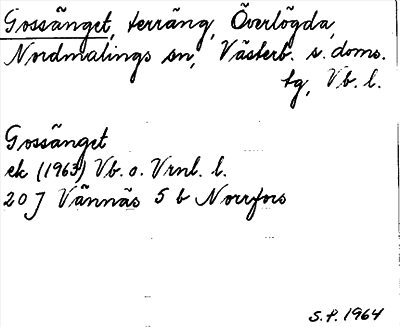 Gossänget, terräng, Överlögda,
Nordmalings sn, Västerb. s. doms.
tg, Vb. l.
Gossänget
ek (1963) Vb. o. Vrnl. l.
20 J Vännäs 5 b Norrfors
S.P. 1964